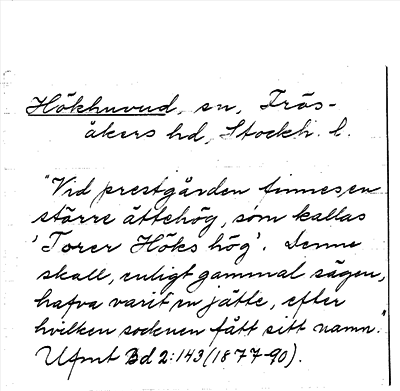 Hökhuvud, sn, Frös-
åkers hd, Stockh. l.
"Vid prestgården finnes en
större ättehög, som kallas
'Torer Höks hög'. Denne
skall, enligt gammal sägen,
hafva varit en jätte, efter
hvilken socknen fått sitt namn."
UFmt Bd 2:143 (1877-90).